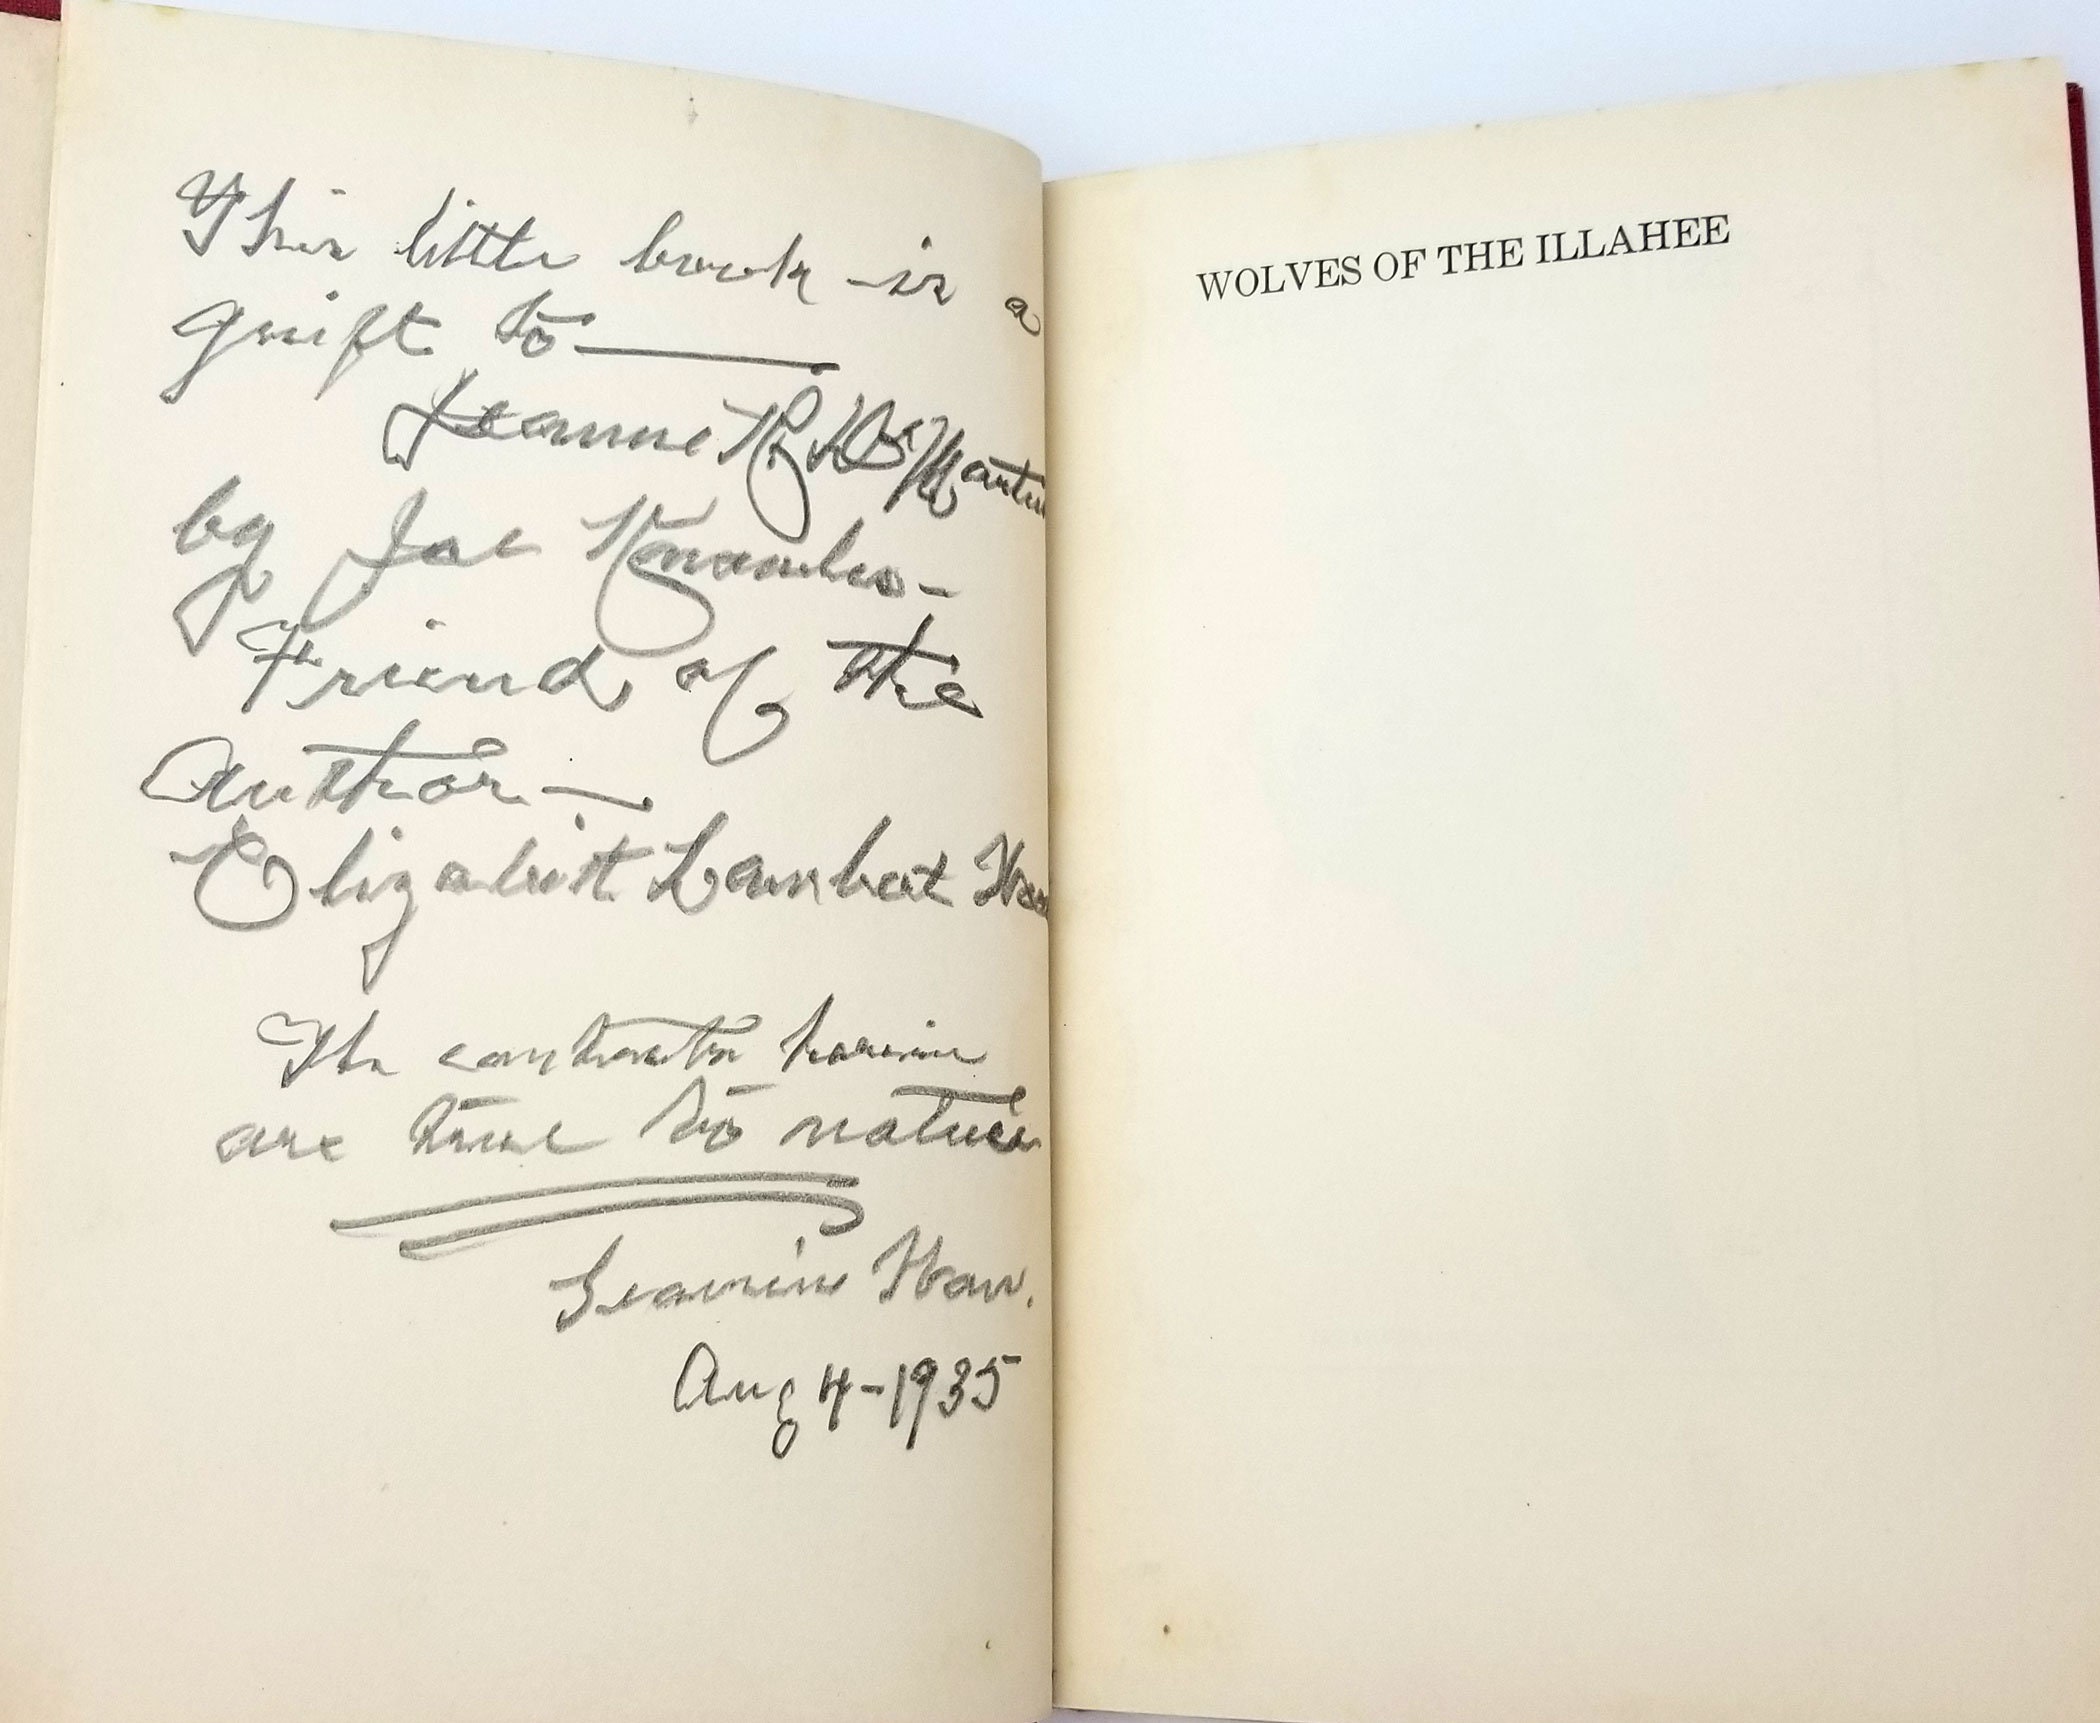 This little book is a
guift to
Jeanne
by Joe Knowles -
Friend of the
author -
Elizabeth Lambert
The contents herein
are true to nature
Aug 4-1935
WOLVES OF THE ILLAHEE